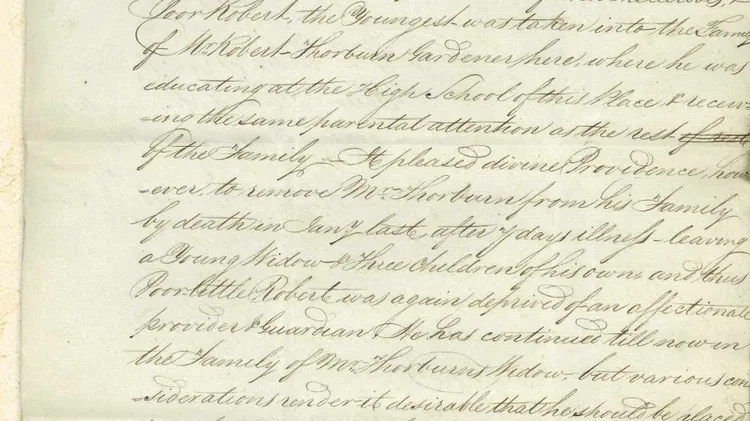 Poor Robert, the Youngest was taken into the Family
of Mr. Robert Thorburn Gardener here, where he was
educating at the High School of this Place & receiv-
-ing the same parental attention as the rest of rest
of the Family — It pleased divine Providence, how
-ever, to remove Mr. Thorburn from his Family
by death in Jany last, after 7 days illness - leaving
a Young Widow & Three Children of his own, and thus
Poor little Robert was again deprived of an affectionate
provider & Guardian. He has continued till now in
the Family of Mr. Thorburns Widow, but various con
-siderations render it desirable that he should be placed